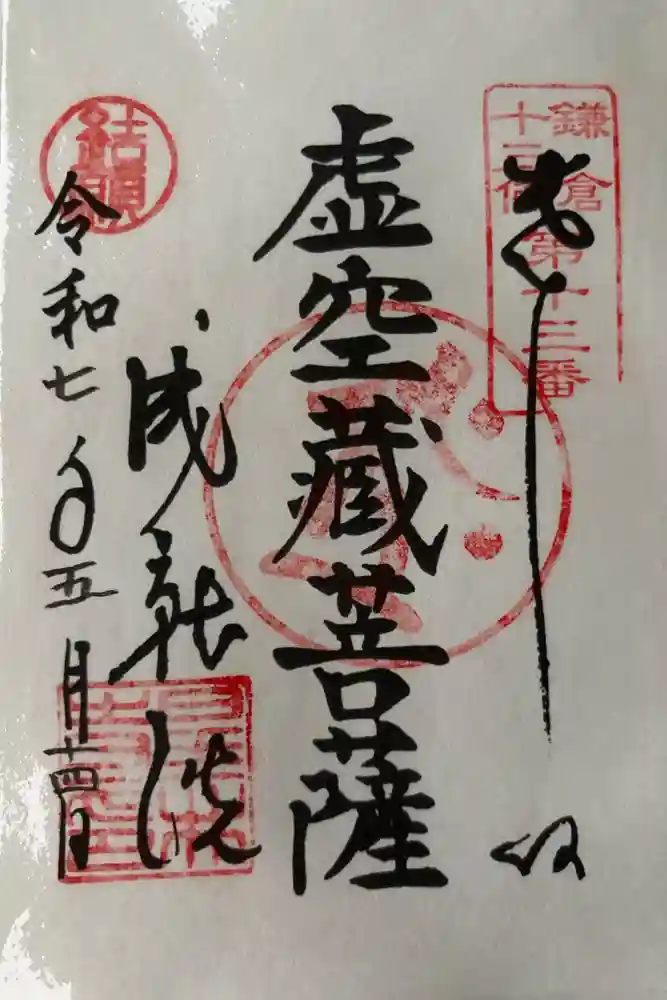 鎌倉
十三佛
第十三番
奉拝
虚空蔵菩薩
成就院
結願
令和七年五月十四日